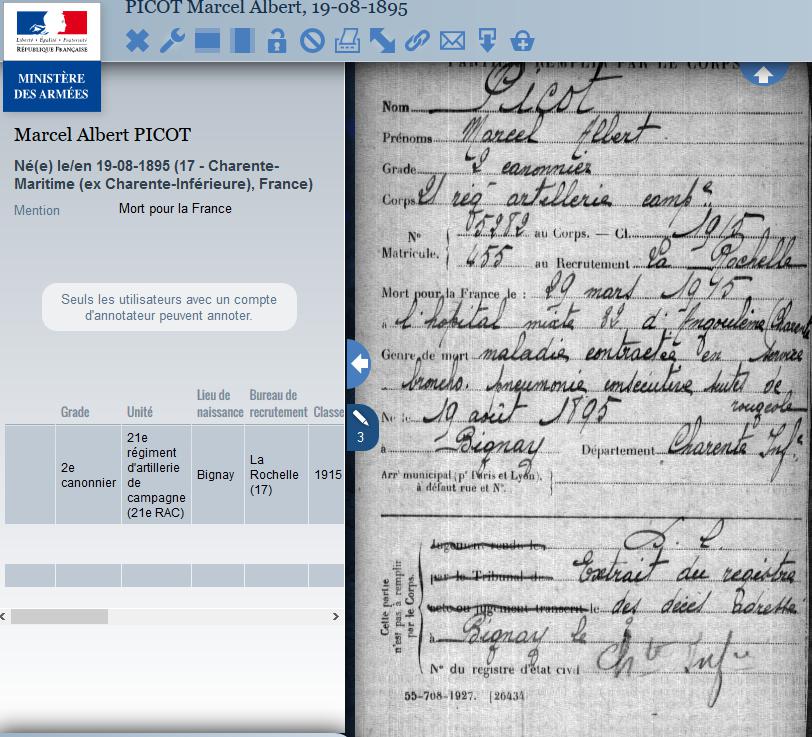 PICOT Marcel Albert, 19-08-1895
Liberté • Égalité • Fraternité
RÉPUBLIQUE FRANÇAISE
MINISTÈRE
DES ARMÉES
Marcel Albert PICOT
Né(e) le/en 19-08-1895 (17 - Charente-
Maritime (ex Charente-Inférieure), France)
Mention Mort pour la France
Seuls les utilisateurs avec un compte
d'annotateur peuvent annoter.
Grade Unité Lieu de naissance Bureau de recrutement Classe
2e canonnier 21e régiment d'artillerie de campagne (21e RAC) Bignay La Rochelle (17) 1915
3
REMPLIR PAR LE CORPS
Nom Picot
Prénoms Marcel Albert
Grade 2 canonnier
Corps 21 rég artillerie camp e
N° 05282 au Corps. — Cl. 1915
Matricule. 455 au Recrutement La Rochelle
Mort pour la France le : 29 mars 1915
à l'hopital mixte 32 d'Angoulême (Charente
Genre de mort maladie contractée en service
broncho. pneumonie consécutive suites de
rougeole
Né le 19 août 1895
à Bignay Département Charente Infre
Arrt municipal (pr Paris et Lyon),
à défaut rue et N°.
Cette partie
n'est pas à remplir
par le Corps.
Jugement rendu le D. C.
par le Tribunal de Extrait du registre
acte ou jugement transcrit le des décès adressé
à Bignay le
N° du registre d'état civil Chte Infre
55-708-1927. [26434]